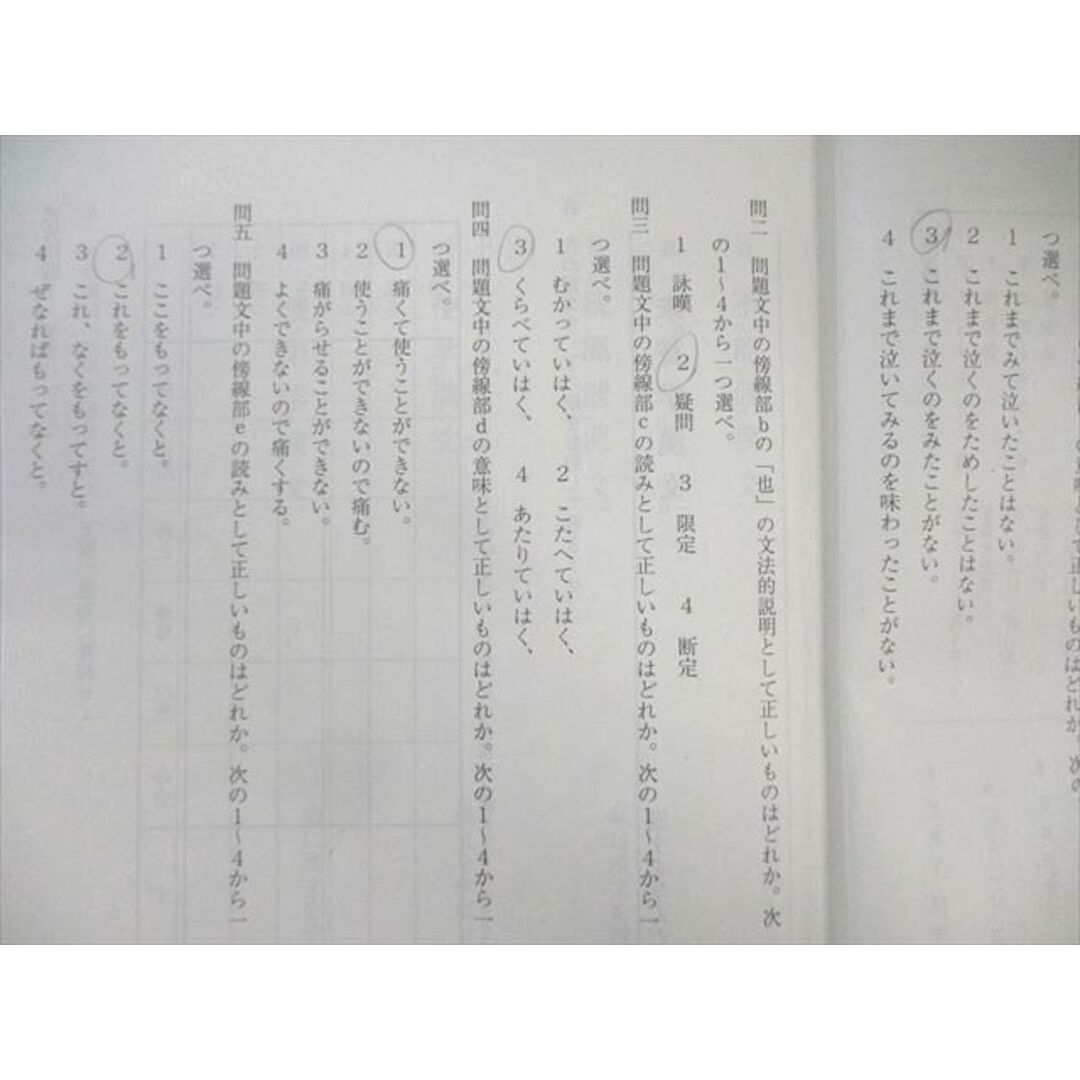 つ選べ。
1 これまでみて泣いたことはない。
2 これまで泣くのをためしたことはない。
3 これまで泣くのをみたことがない。
4 これまで泣いてみるのを味わったことがない。
問二 問題文中の傍線部bの「也」の文法的説明として正しいものはどれか。次
の1~4から一つ選べ。
1 詠嘆 2 疑問 3 限定 4 断定
問三 問題文中の傍線部cの読みとして正しいものはどれか。次の1~4から一
つ選べ。
1 むかっていはく、 2 こたへていはく、
3 くらべていはく、 4 あたりていはく、
問四 問題文中の傍線部dの意味として正しいものはどれか。次の1~4から一
つ選べ。
1 痛くて使うことができない。
2 使うことができないので痛む。
3 痛がらせることができない。
4 よくできないので痛くする。
問五 問題文中の傍線部eの読みとして正しいものはどれか。次の1~4から一
つ選べ。
1 ここをもってなくと。
2 これをもってなくと。
3 これ、なくをもってすと。
4 ぜなればもってなくと。